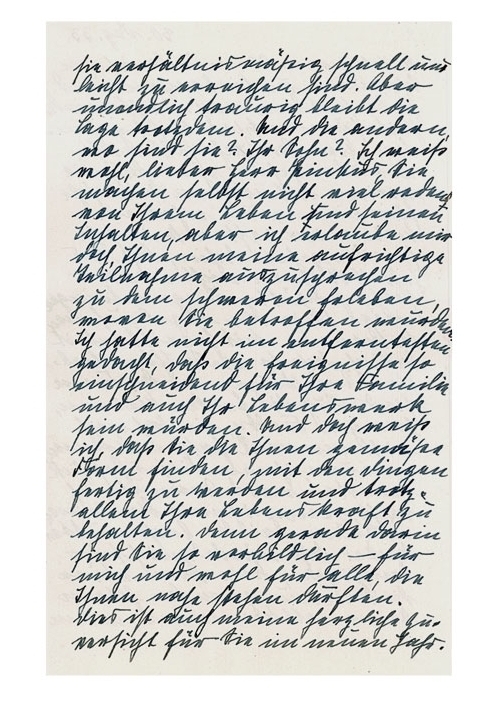 sie verhältnismäßig schnell und
leicht zu erreichen sind. Aber
unendlich traurig bleibt die
Lage trotzdem. Und die andern,
wo sind sie? Ihr Sohn? Ich weiß
wohl, lieber Herr Sie
machen selbst nicht viel reden
von Ihrem Leben und seinen
Inhalten, aber ich erlaube mir
doch, Ihnen meine aufrichtige
Teilnahme auszusprechen
zu dem schweren Erleben,
wovon Sie betroffen wurden.
Ich hatte nicht im entferntesten
gedacht, daß die Ereignisse so
einschneidend für Ihre Familie
und auch Ihr Lebenswerk
sein würden. Und doch weiß
ich, daß Sie die Ihnen gemäße
Form finden, mit den Dingen
fertig zu werden und trotz
allem Ihre Lebenskraft zu
behalten. Denn gerade darin
sind Sie so vorbildlich – für
mich und wohl für alle, die
Ihnen nahe stehen durften.
Dies ist auch meine herzliche Zu-
versicht für Sie im neuen Jahr.